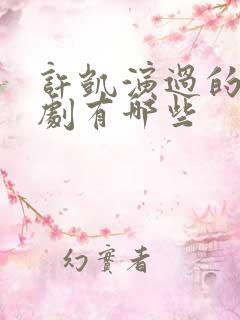 許凱演過的
劇有哪些
幻實者